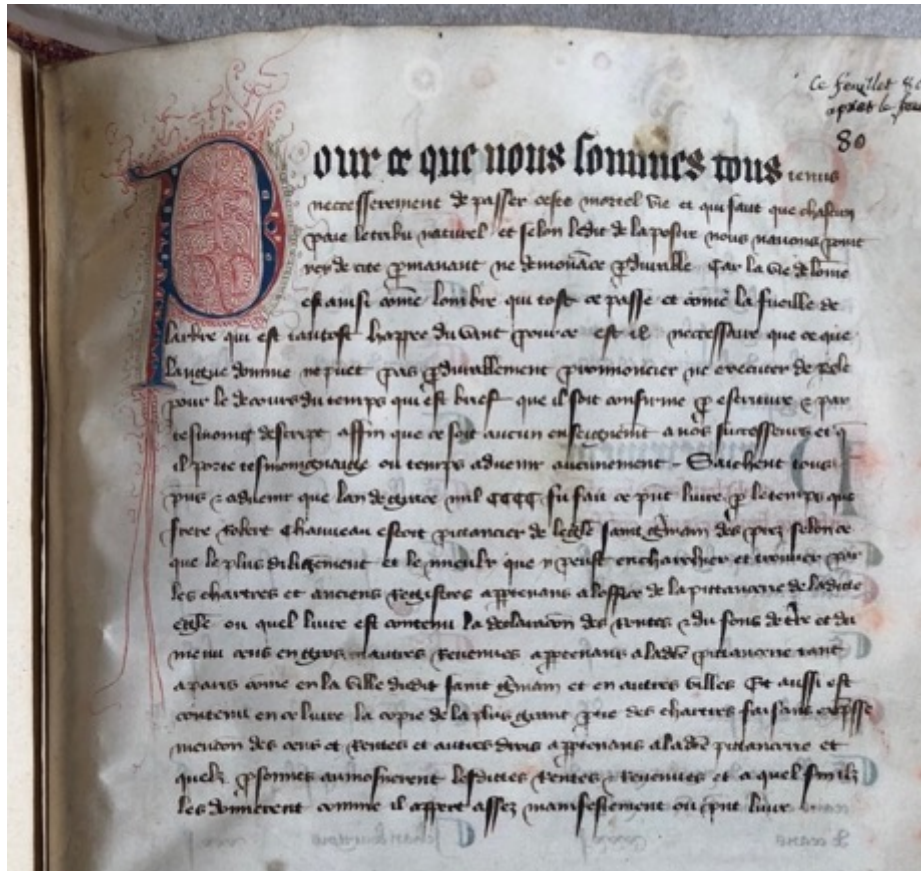 Ce feuillet 80
apres le feu
80
Pour ce que nous sommes tous tenus
neccesserement de passer ceste mortel vie et qui faut que chascun
paie le tribu naturel et selon le dit de lapostre nous navons point
cy de cite pmanant ne demouāce pdurable Car la vie de lōme
est ainsi cōme lombre qui tost ce passe et cōme la fueille de
larbre qui est tantost happee du vant pource est il neccessaire que ce que
langue domme ne puet pas pdurablement prononcier ne executer de
pour le decours du temps qui est brief que il soit conferme p escripture & par
tesmoings descript affin que ce soit aucun enseignemt a nos successeurs et q
il porte tesmoingnaige ou temps advenir aucunement Saichent tous
pns & advenir que lan de grace mil CCCC fu fait ce pnt livre p le temps que
frere Robert Chauveau estoit pittancier de legle saint gmain des prez selon ce
que le plus diligement et le mieulx que il peust encharchier et trouver par
les chartres et anciens Registres apptenans a loffice de la pittancerie de ladicte
egle ou quel livre est contenu la declaracōn des Rentes & du fons de tre et du
menu cens en gros autres Revenues apptenans a ladcē pittancerie tant
a paris cōme en la ville dudit saint gmain et en autres villes Et aussi est
contenu en ce livre la copie de la plus grant ptie des chartres faisans expsse
mencon des cens et Rentes et autres drois apptenans a ladcē pittancerie et
quelz psonnes aumosnerent lesdictes Rentes & Revenues et a quel fin ilz
les donnerent comme il appert assez manifestement ou pnt livre